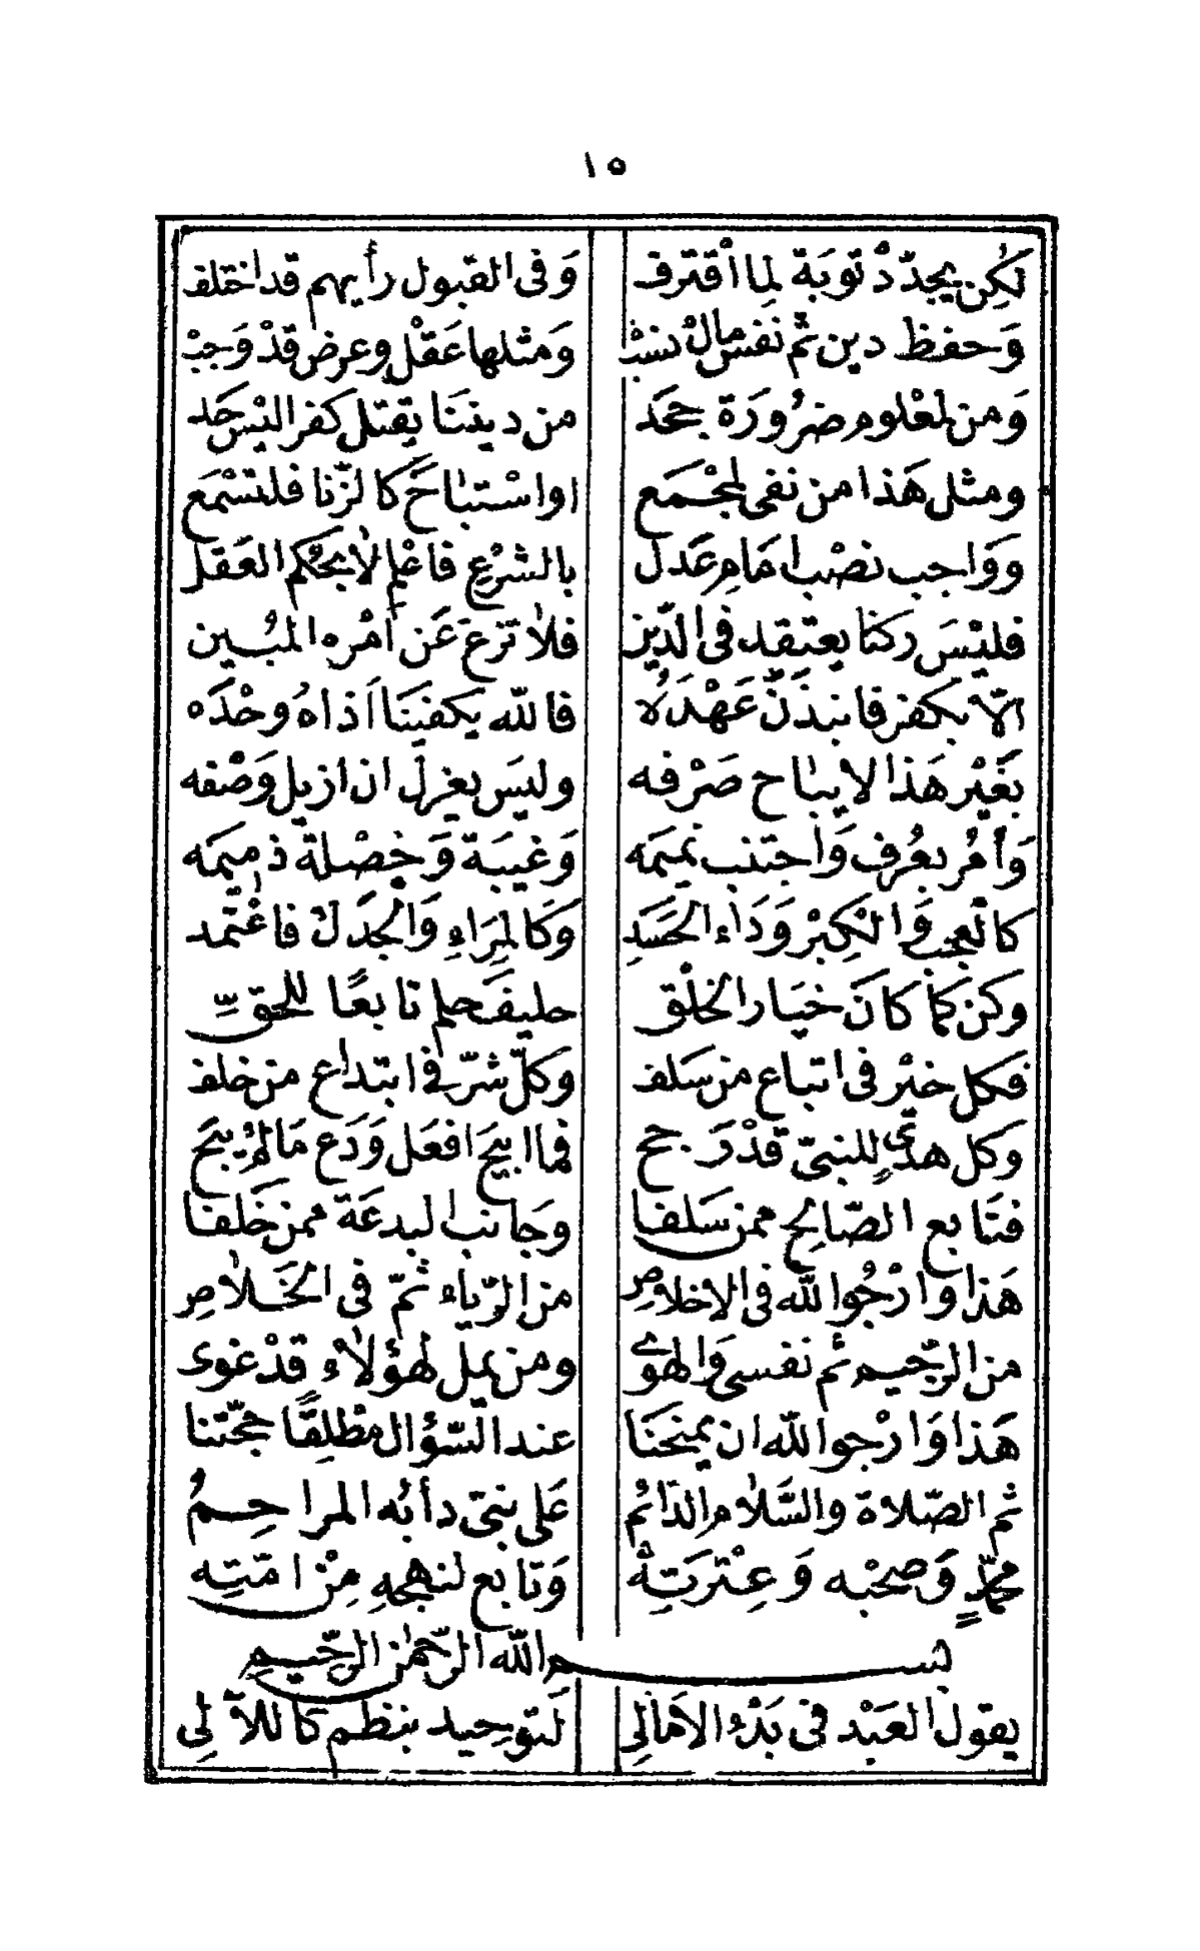 ١٥
لٰكِن يجدّدْ توبَة لِما اقْترف وَفى القبول رأيهم قد اختلف
وَحفظ دين ثمّ نفس مالْ نسَبْ وَمثلها عَقْل وعرض قدْ وَجبْ
وَمن لمعْلوم ضرُورَة جحَد من ديننَا يقتل كفرا ليْس حَد
ومثل هَذا من نفى لمجْمَع او اسْتبَاحَ كالزّنا فلتسْمَع
وَوَاجب نصْب امَامِ عَدل بالشرْعِ فاعْلم لا بحُكم العَقل
فليْسَ ركنا يعتقد فى الدّين فلا تزغ عَن أمْره المبُين
الاّ بكفر فانبذَنّ عَهْدَهُ فالله يكفيَنَا اَذاهُ وحْدَه
بغَيْر هَذا لا يبَاح صَرْفه وليسَ يعزل ان ازيل وَصْفه
وَأمُر بعُرف وَاجتنب نميمَه وَغيبَة وَخصْلة ذميمَه
كالعجب وَالكِبْر وَدَاء الحَسَدِ وَكالمِرَاءِ وَالجَدَلْ فاعْتمد
وكن كما كانَ خيَار الخلْق حليفَ حلم تابعًا للحقّ
فكل خيْر فى اتباع من سَلف وَكلّ شرّ فى ابتداع من خلف
وكل هدْىٍ للنبىّ قدْ رَجح فما ابيحَ افعَل وَدَع مَا لمْ يبَح
فتَابع الصّالِح ممن سَلفا وجَانب البدعَة ممن خَلفا
هَذا وَارْجُو الله فى الاخلاصِ من الرّيَاء ثمّ فى الخَلاصِ
من الرّجيم ثم نفسى وَالهوى ومن يمل لهؤلاءْ قدْ غوى
هَذا وَارْجو الله ان يمنحَنَا عند السّؤال مطْلقًا حجّتنا
ثم الصّلاة والسّلام الدّائمُ عَلى نبىّ دأبُه المراحِمُ
محمّدٍ وَصحْبه وَعِتْرَتِهْ وَتابع لنهجهِ مِنْ امّتِه
بسم الله الرّحمٰن الرّحيم
يقول العَبْد فى بَدْء الامَالى لتوحيد بنظم كاللآلى